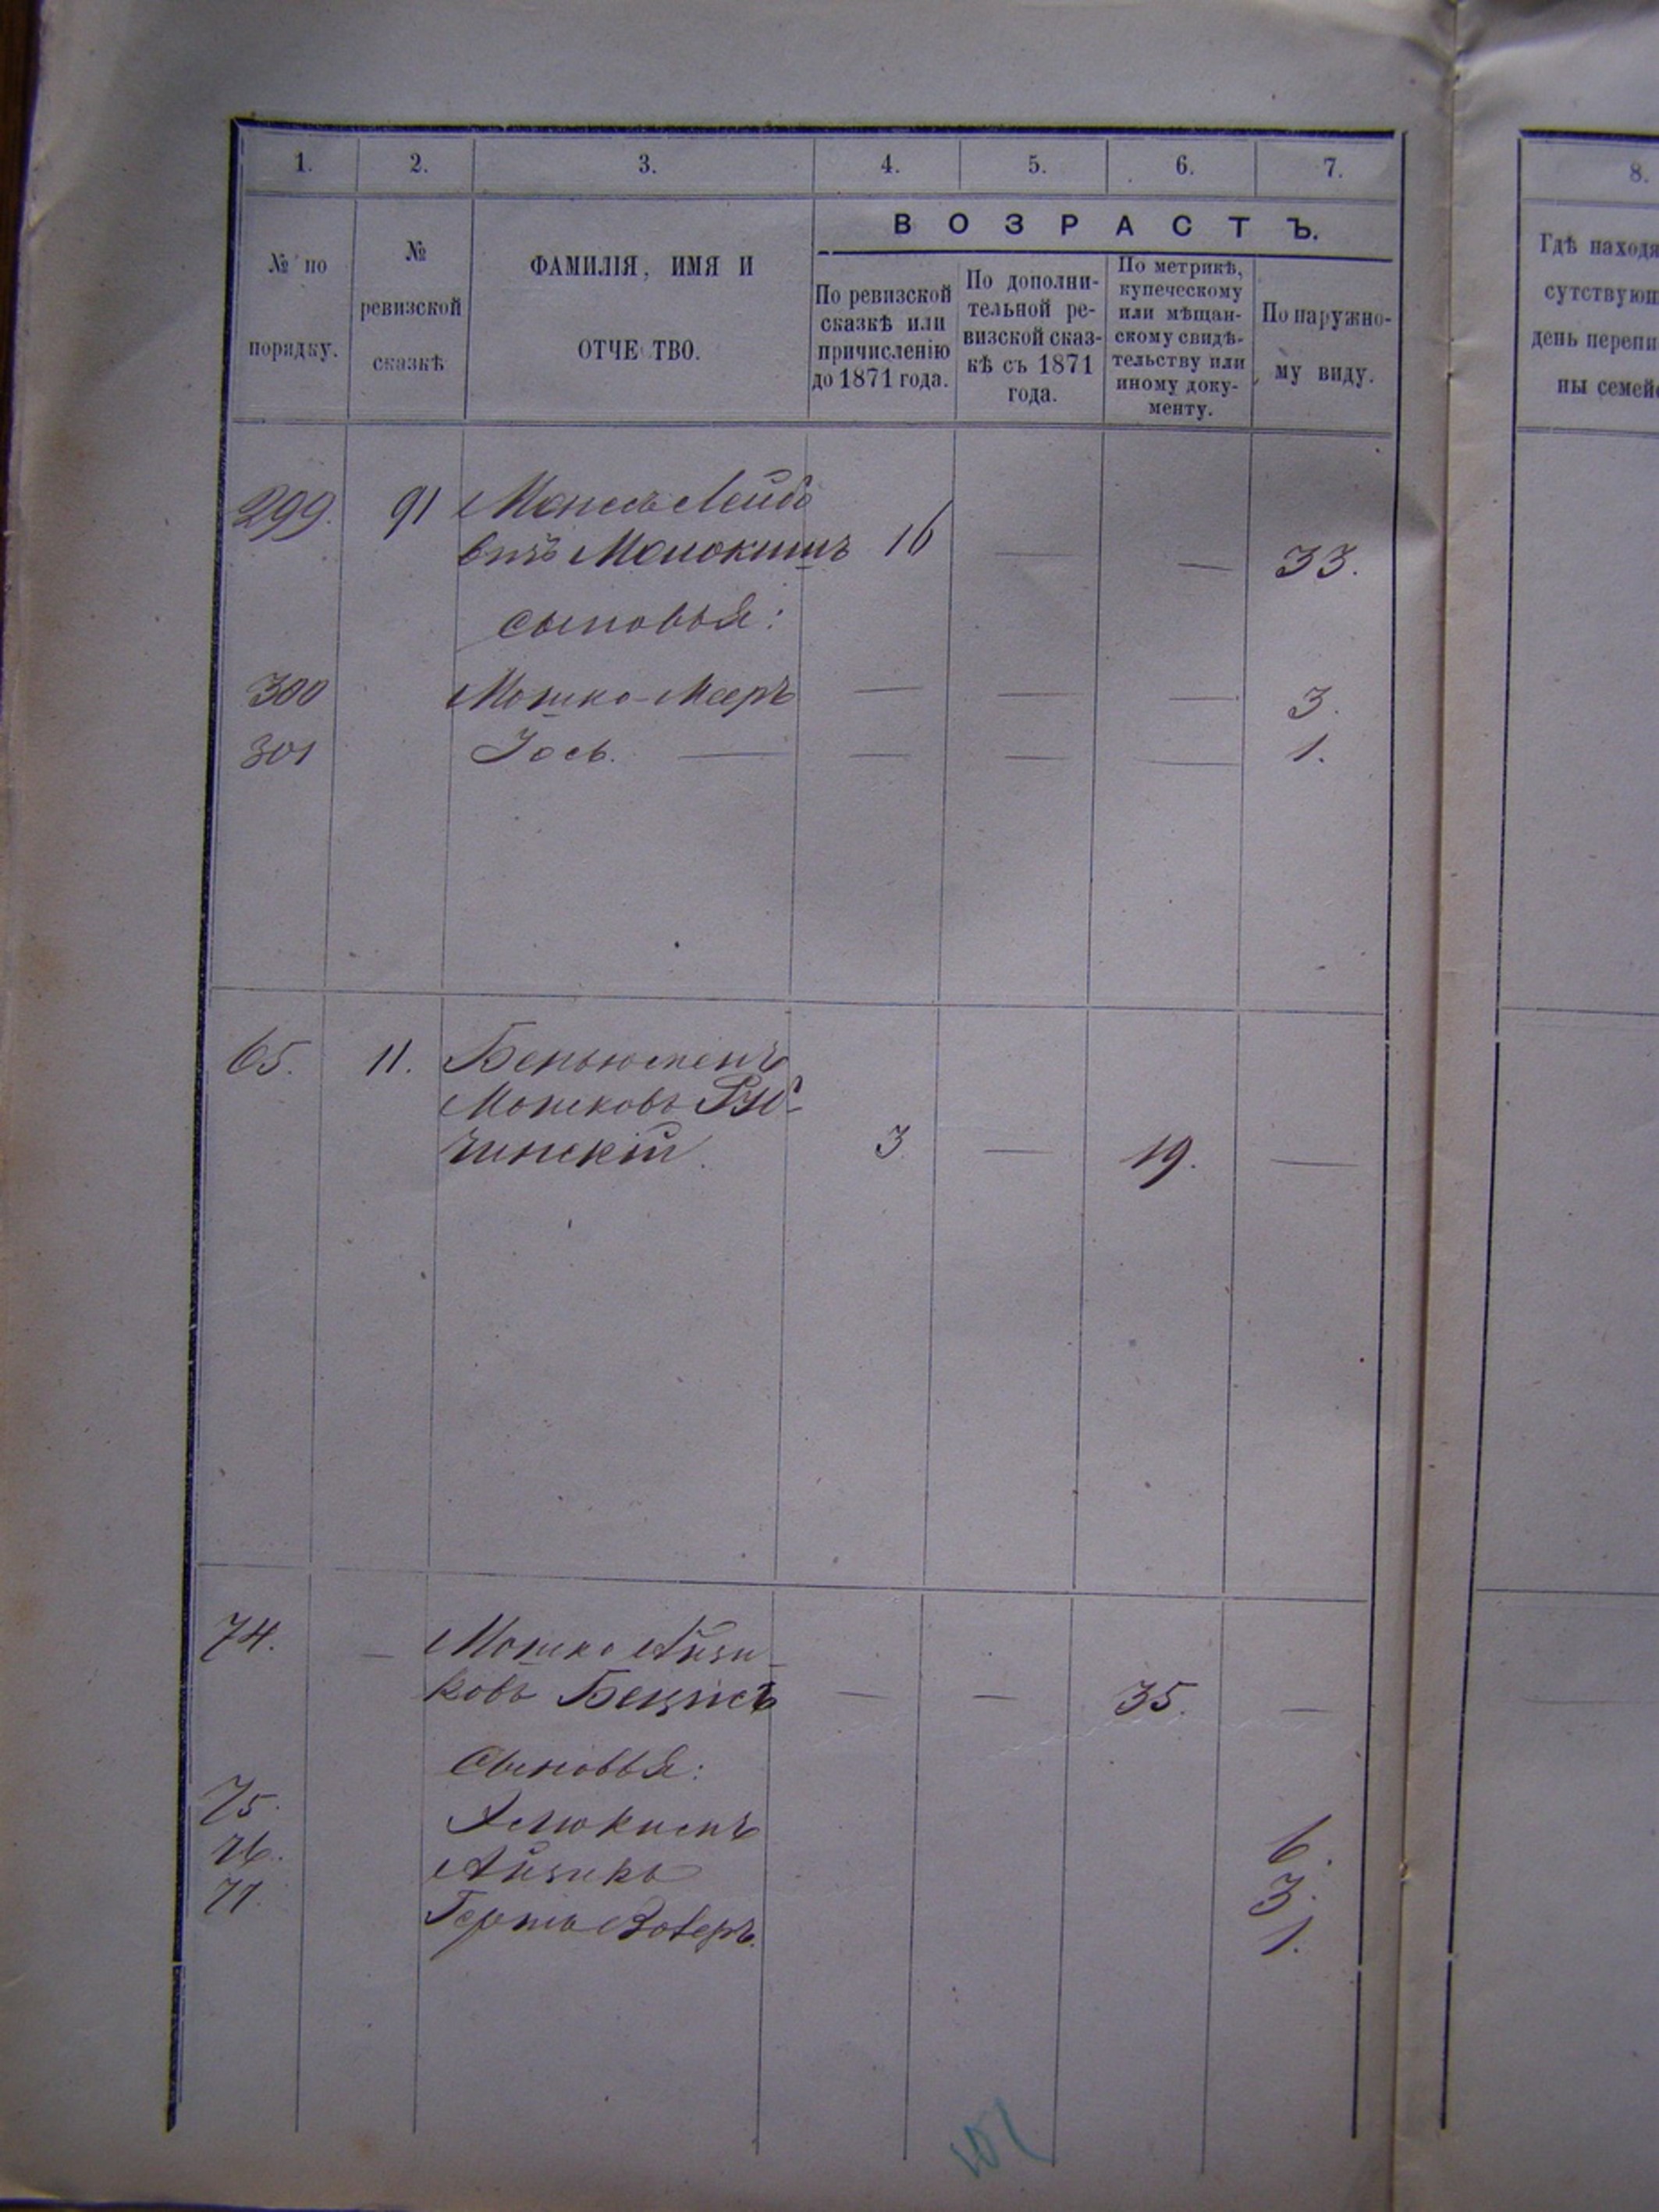 1. 2. 3. 4. 5. 6. 7.
№ по порядку.
№ ревизской сказкѣ
ФАМИЛІЯ, ИМЯ И
ОТЧЕСТВО.
ВОЗРАСТЪ.
По ревизской
сказкѣ или
причисленію
до 1871 года.
По дополни-
тельной ре-
визской сказ-
кѣ съ 1871
года.
По метрикѣ,
купеческому
или мѣщан-
скому свидѣ-
тельству или
иному доку-
менту.
По наружно-
му виду.
299. 91 Лейбо
16 — — 33.
сыновья:
300 Мошко-Мееръ — — — 3.
301 Іось. — — — — 1.
65. 11. Беньюменъ
Мошковъ Ру-
чинскій 3 — 19. —
74. — Мошко Айзи-
ковъ — — 35. —
Сыновья:
75. 6.
76. Айзикъ 3.
77. 1.
101
8.
Гдѣ находя
сутствующ
день перепи
ны семей